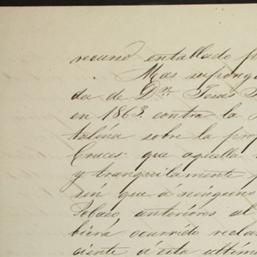 recurso entablado p
Mas supong
da de Dn Jesus
en 1863. contra la
taliza sobre la pro
Cruces: que aquella
y tranquilamente
sin que á ninguno
anteriores al
biera ocurrido recla
ciente á esta ultim